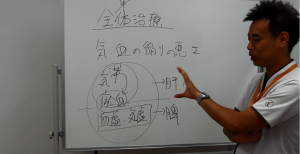 全体治療
気血の滞りの悪さ
気滞
瘀血 →肝
血虚・気虚 →脾